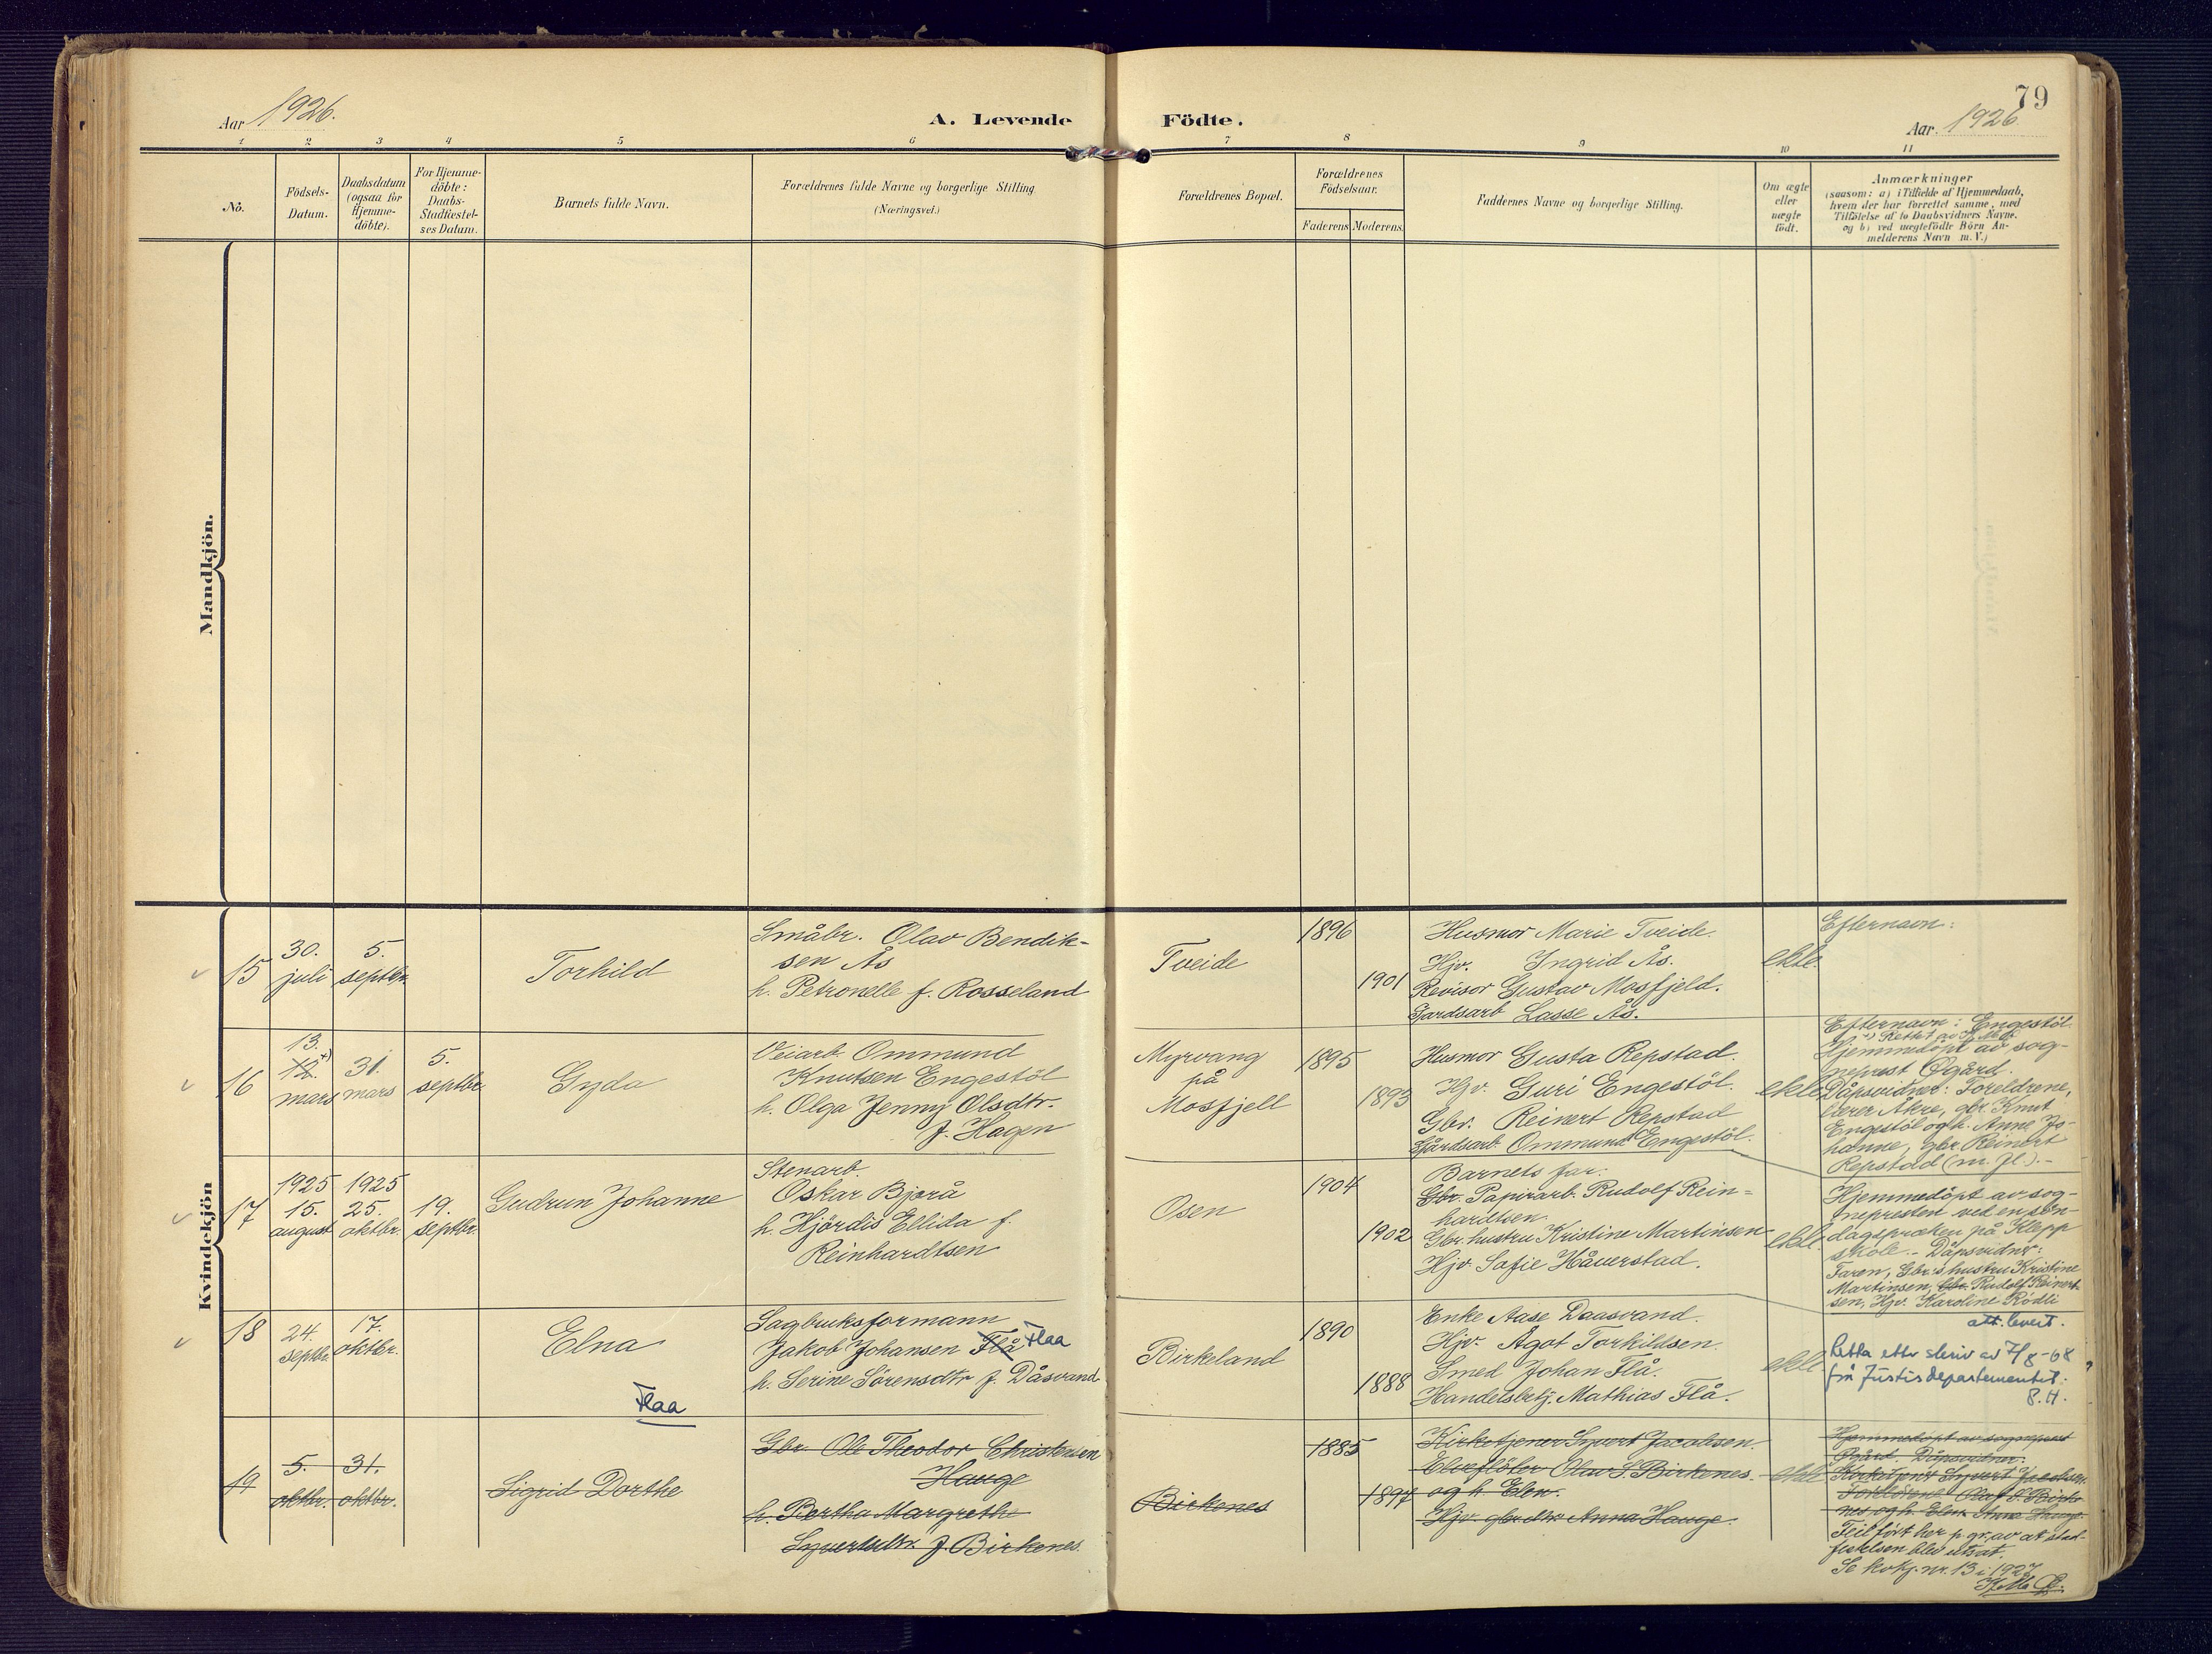 79
Aar 1926.
A. Levende Födte.
Aar. 1926
1 2 3 4 5 6 7 8 9 10 11
No.
Födsels-
Datum.
Daabsdatum
(ogsaa for
Hjemme-
döbte).
For Hjemme-
döbte:
Daabs-
Stadfæstel-
ses Datum.
Barnets fulde Navn.
Forældrenes fulde Navne og borgerlige Stilling
(Næringsvei.)
Forældrenes Bopæl.
Forældrenes
Födselsaar.
Faderens Moderens.
Faddernes Navne og borgerlige Stilling.
Om ægte
eller
uægte
födt.
Anmærkninger
(saasom: a) i Tilfælde af Hjemmedaab,
hvem der har forrettet samme, med
Tilföielse af to Daabsvidners Navne.
og b) ved uægtefödte Börn An-
melderens Navn m. V.)
Mandkjön.
Kvindekjön
15
30.
juli
5.
septbr.
Torhild
Småbr. Olav Bendik-
sen Ås
h. Petronelle f. Rosseland
Tveide
1896
1901
Husmor Marie Tveide.
Hjv. Ingrid Ås.
Revisor Gustav Mosfjeld.
Gardsarb Lasse Ås.
ekte
Efternavn:
16
13.
12. +)
mars
31.
mars
5.
septbr.
Gyda
Veiarb. Ommund
Knutsen Engestöl
h. Olga Jenny Olsdtr.
f. Hagen
Myrvang
på
Mosfjell
1895
1893
Husmor Gusta Repstad.
Hjv. Guri Engestöl.
Gbr. Reinert Repstad
Gårdsarb. Ommund Engestöl.
ekte
Efternavn: Engestöl
+) Rettet av
Hjemmedöpt av sog-
neprest Øgård.
Dåpsvidner: Foreldrene,
lærer Åkre, gbr. Knut
Engestöl og h. Anne Jo-
hanne, gbr. Reinert
Repstad (m. fl.).-
17
1925
15.
august
1925
25.
oktbr.
19.
septbr.
Gudrun Johanne
Stenarb.
Oskar Bjorå
h. Hjördis Ellida f.
Reinhardtsen
Osen
1904
1902
Barnets far:
Gbr. Papirarb. Rudolf Rein-
hardtsen.
Gbr. hustru Kristine Martinsen
Hjv. Sofie Håverstad.
ekte.
Hjemmedöpt av sog-
nepresten ved en sön-
dagspræken på Klepp
skole. - Dåpsvidner:
Faren, Gbr's hustru Kristine
Martinsen, Gbr. Rudolf Reinert-
sen, Hjv. Karoline Rödli
18
24.
septbr.
17.
oktbr.
Elna
Flaa
Sagbruksformann
Jakob Johansen Flå Flaa
h. Serine Sörensdtr f. Dåsvand
Birkeland
1890
1888
Enke Aase Daasvand.
Hjv. Ågot Torkildsen.
Smed Johan Flå.
Handelsbetj. Mathias Flå.
ekte
att. levert.
Retta ettr skriv av 7/8-68
frå Justisdepartementet.
B.H.
19
5.
oktbr.
31.
oktbr.
Sigrid Dorthe
Gbr. Ole Theodor Christensen
Hauge
h. Bertha Margrethe
Syvertsdtr. f. Birkenes.
Birkenes
1885
1897
Kirketjener Syvert Jacobsen.
Elvefløter Olav S. Birkenes.
og h. Elen.
Hjv. gbr.dtr. Anna Hauge.
ekte
Hjemmedöpt av sogneprest
Øgård. Dåpsvidner:
Kirketjener Syvert Jacobsen
Foreldrene Olaf S. Birke-
nes og h. Elen. Anna Hauge.
Feilført her p. gr. av at stad-
festelsen blev utsat.
Se kvkj. nr. 13 i 1927